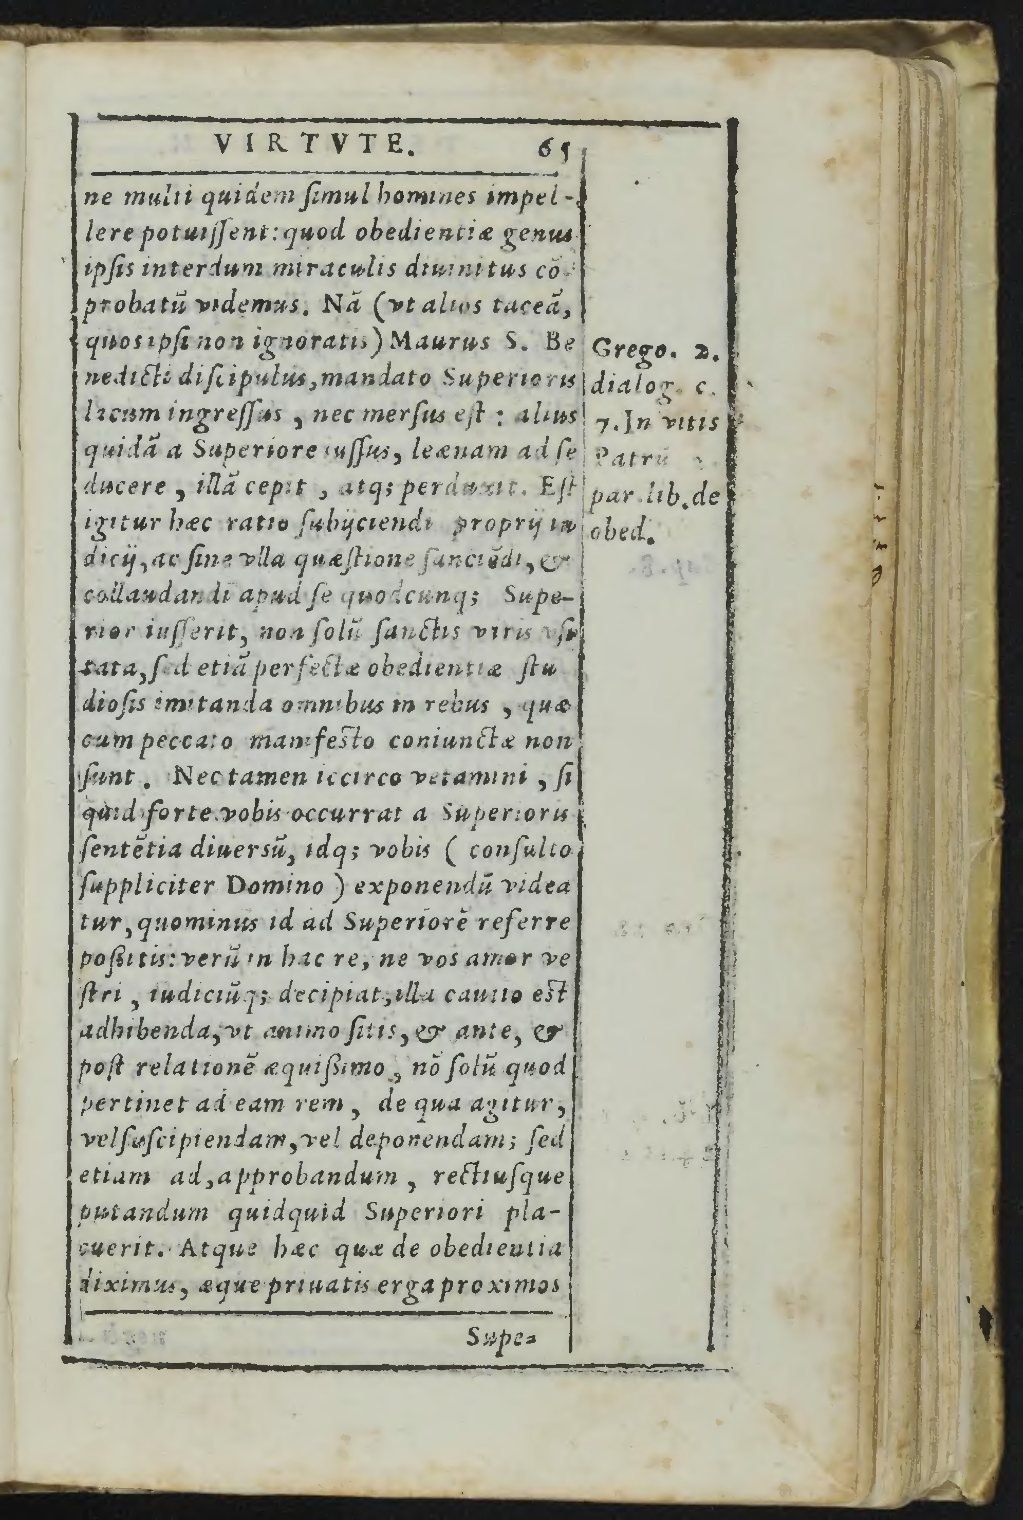 VIRTVTE. 65
ne multi quidem ſimul homines impel-
lere potuiſſent: quod obedientiæ genus
ipſis interdum miraculis diuinitus cō
probatū videmus. Nā (vt alios taceā,
quos ipſi non ignoratis) Maurus S. Be
nedicti diſcipulus, mandato Superioris
lacum ingreſſus, nec merſus eſt: alius
quidā a Superiore iuſſus, leænam ad ſe
ducere, illā cepit, atq; perduxit. Eſt
igitur hæc ratio ſubijciendi proprij iu
dicij, ac ſine vlla quæſtione ſanciēdi, &
collaudandi apud ſe quodcunq; Supe-
rior iuſſerit, non ſolū ſanctis viris vſi
tata, ſed etiā perfectæ obedientiæ ſtu
dioſis imitanda omnibus in rebus, quæ
cum peccato manifeſto coniunctæ non
ſunt. Nec tamen iccirco vetamini, ſi
quid forte vobis occurrat a Superioris
ſentētia diuersū, idq; vobis (conſulto
ſuppliciter Domino) exponendū videa
tur, quominus id ad Superiorē referre
poßitis: verū in hac re, ne vos amor ve
ſtri, iudiciūq; decipiat, illa cautio eſt
adhibenda, vt animo ſitis, & ante, &
poſt relationē æquißimo, nō ſolū quod
pertinet ad eam rem, de qua agitur,
vel ſuſcipiendam, vel deponendam; ſed
etiam ad, approbandum, rectiuſque
putandum quidquid Superiori pla-
cuerit. Atque hæc quæ de obedientia
diximus, æque priuatis erga proximos
Supe-
Grego. 2.
dialog. c.
7. In vitis
Patrū
par. lib. de
obed.